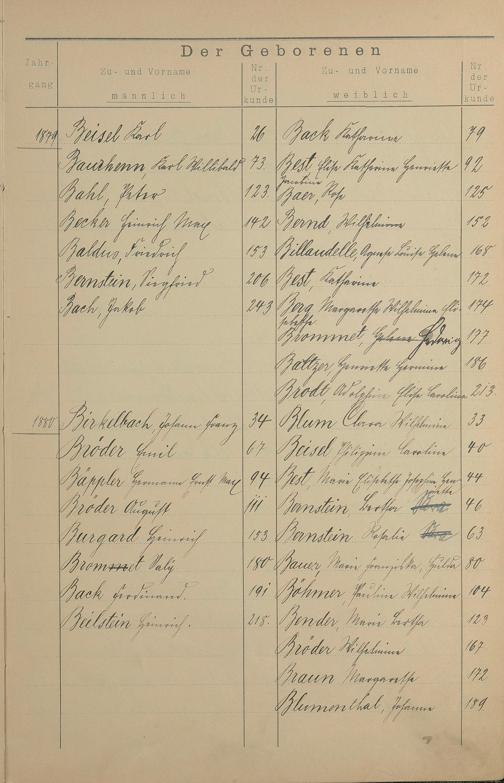 Der Geborenen
Jahr-
gang
Zu- und Vorname
männlich
Nr.
der
Ur-
kunde
Zu- und Vorname
weiblich
Nr.
der
Ur-
kunde
1879 Beisel Karl 26 Back Katharina 79
Baurhenn Karl Willibald 73 Best Elise Katharina Henriette 92
Bahl, Peter 123 Baer, Rosa 125
Becker Heinrich Max 142 Bernd, Wilhelmine 152
Baldus, Friedrich 153 Billaudelle, Agnes Louise Helene 168
Bernstein, Siegfried 206 Best, Katharina 172
Bach, Jakob 243 Berg Margaretha Wilhelmine 174
Brommet, Hedwig 177
Baltzer, Henriette Hermine 186
Brodt, Adolphine Elise Carolina 213
1880 Birkelbach, Johann Franz 34 Blum Clara Wilhelmine 33
Bröder Emil 67 Beisel Philippine Caroline 40
Bäppler Hermann Ernst Max 94 Best, Marie Elisabetha Josephine 44
Bröder August 111 Bernstein Bertha 46
Burgard Heinrich 153 Bernstein Rosalie 63
Brommet Saly 180 Bauer Marie Franziska, Julia 80
Back Ferdinand. 191 Böhmer, Pauline Wilhelmine 104
Bielstein Heinrich. 218. Bender, Marie Bertha 123
Bröder Wilhelmine 167
Braun Margarethe 172
Blumenthal, Johanna 189